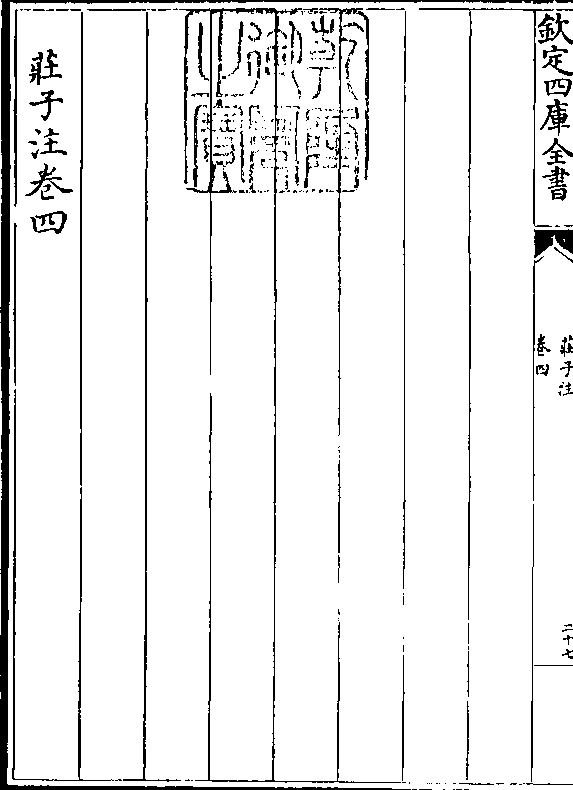 欽定四庫全書
莊子注
卷四
二十七
乾隆御覽之寶
莊子注卷四